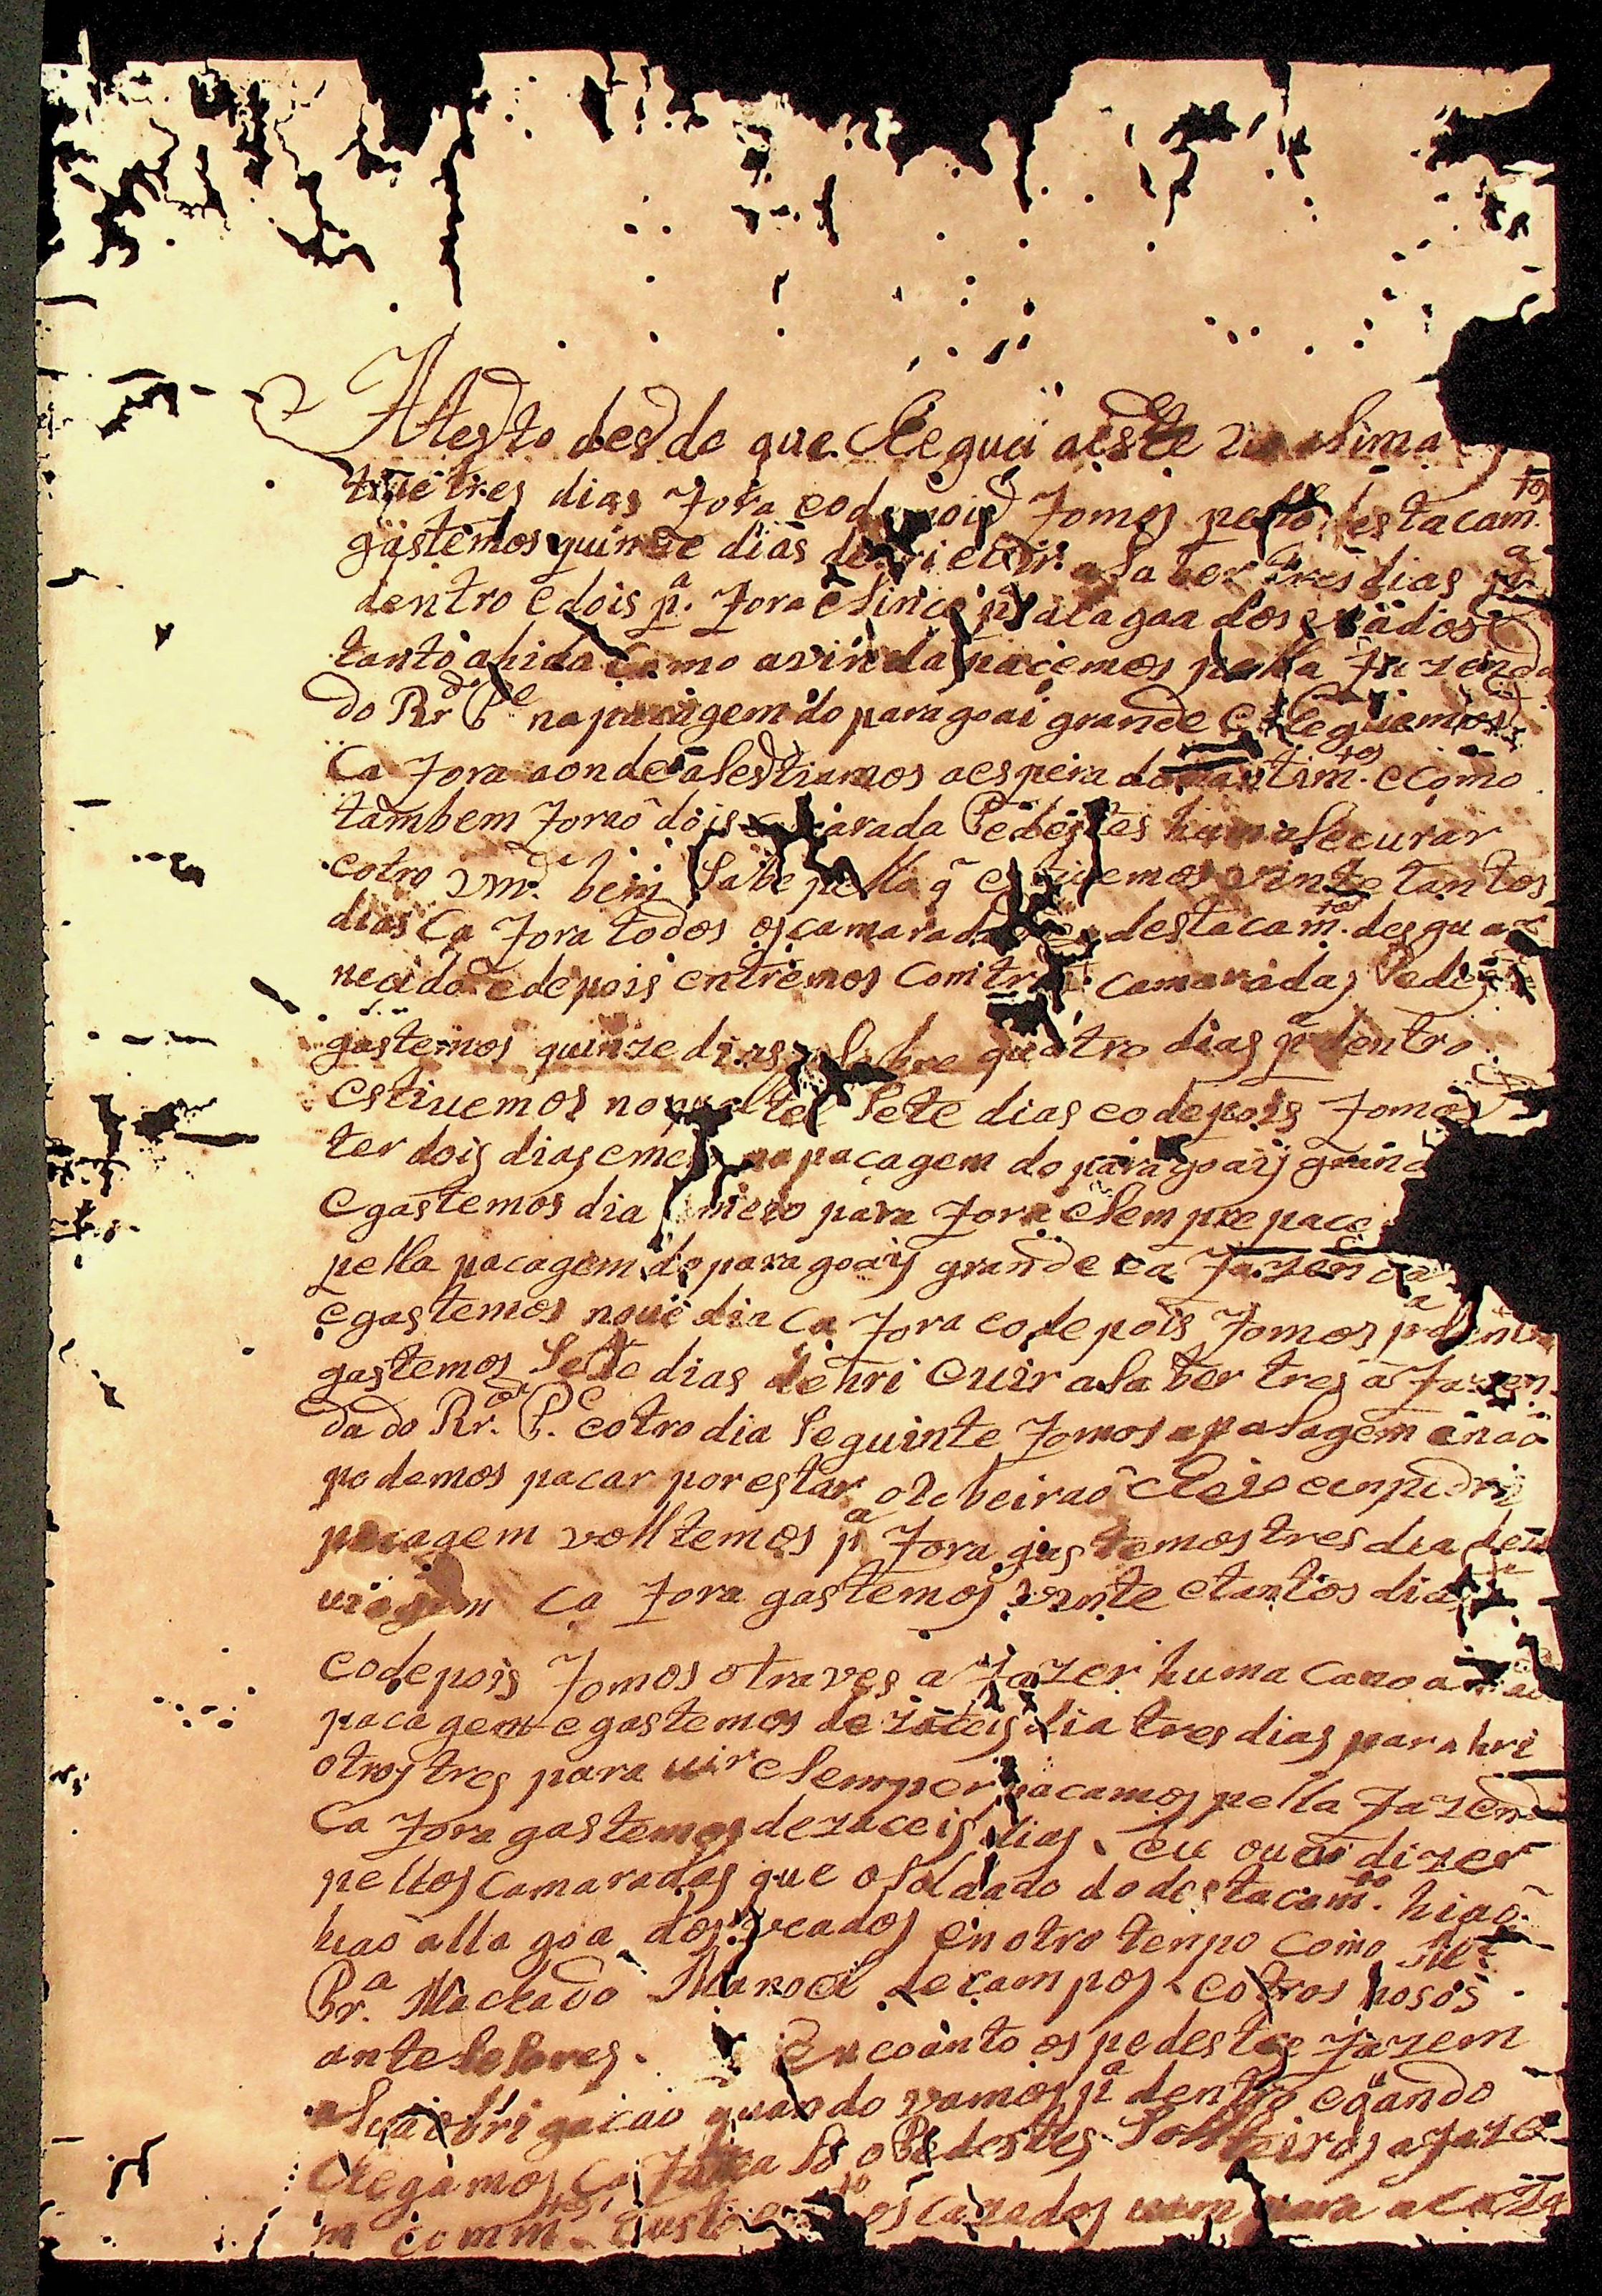 Atesto desde que Cheguei aeste
tiue tres dias fora eodepois fomos pello destacam.to
gastemos quinze dias dehri euir aSaber tres dias p.a
dentro edois p.a fora eSinco p.a alagoa dos veados
tanto ahida Como avinda pacemos pella fazenda
do Rr.do P.e napacagem do paragoai grande e Cheguemos
Ca fora aonde aSestiamos aespera do mantim.tos eComo
tambem forão dois camarada Pedestes hum aSecurar
eotro vm.ce bem Sabe pella q̃ estiuemos vinte tantos
dias Ca fora todos os camaradas destacam.to desguar
necido edepois entremos Com tres Camaradas Pedes
gastemos quinze dias aSabre quatro dias p.a dentro
estiuemos noqualtel Sete dias eodepois fomos
ter dois dias emeio na pacagem do paragoaij grande
egastemos dia emeio para fora eSempre pace
pella pacagem do paragoaij grande ea fazenda
egastemos noue dia Ca fora eodepois fomos p.a dentro
gastemos Sette dias dehri euir aSaber tres a fazen
da do Rr.do P.e eotro dia Seguinte fomos apaSagem enão
podemos pacar porestar oRibeirão Cheio eenpidri
pacagem volltemos p.a fora gastemos tres dia de
uiagem Ca fora gastemos vinte etantos dias
eodepois fomos otraves a fazer huma Canoa
pacagem egastemos dezaceis dia tres dias para hri
otros tres para uir eSemper pacamos pella fazend
Ca fora gastemos dezaceis dias. eu ouui dizer
pellos Camaradas que oSoldado dodestacam.to hiaõ
huas allagoa dos veados enotro tenpo Como M.el
Pr.a Machado Manoel de campos eotros nosos
anteSeSores. Encoanto os pedestes fazem
aSua obrigacão quando vamos p.a dentro eqando
Chegamos Ca fora So oPedestes Sollteiros afaze
m comm. Custo os Cazados uam para aCaza